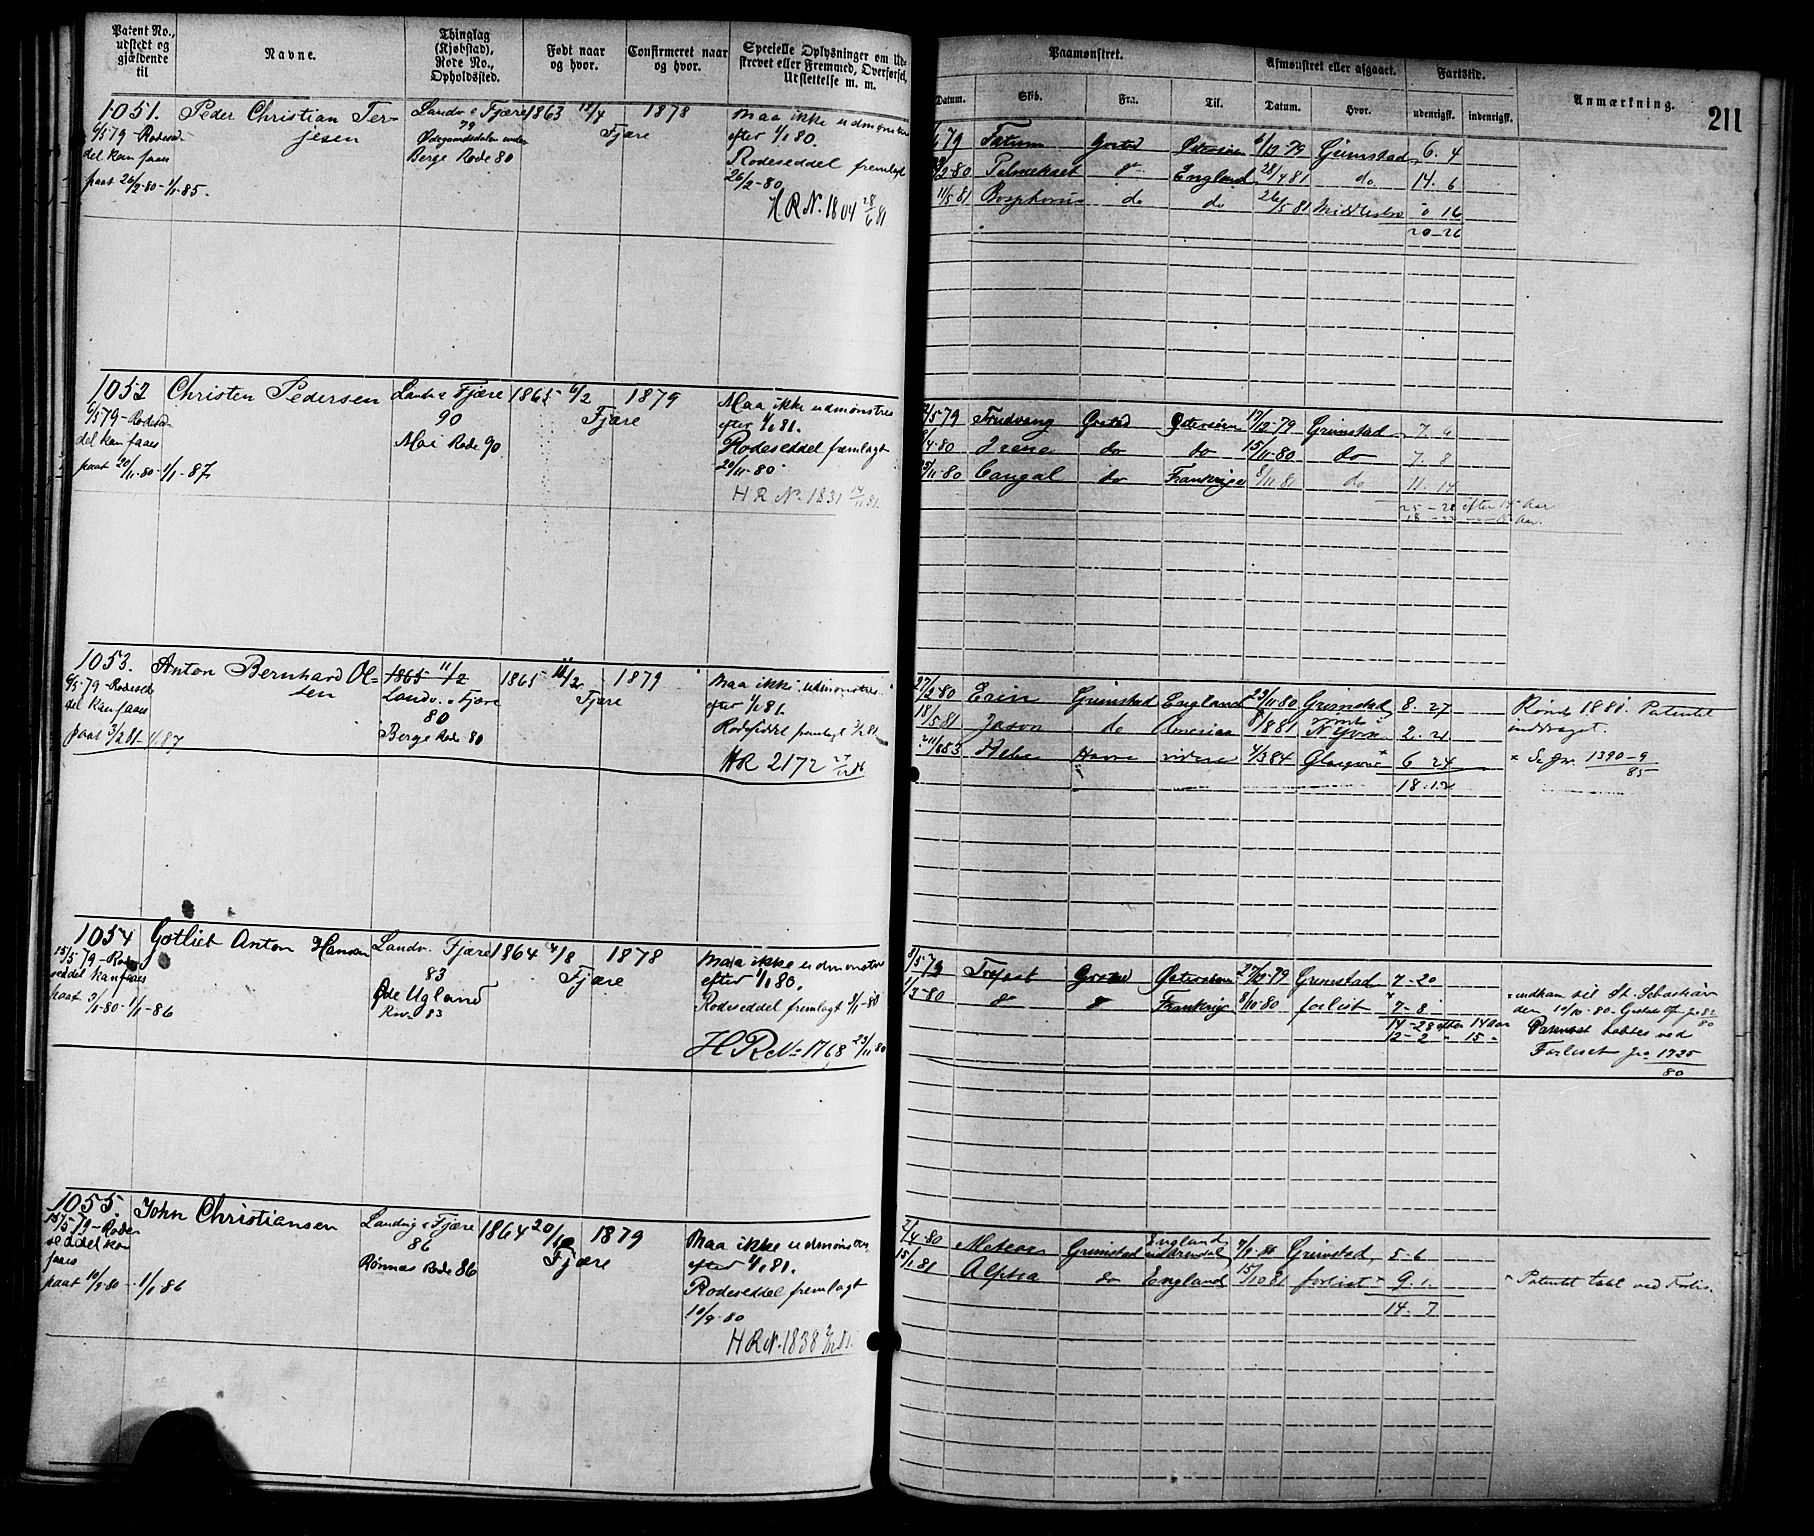 Patent No., udstedt og gjældende til
Navne.
Thinglag (Kjøbstad), Rode No., Opholdssted.
Født naar og hvor.
Confirmeret naar og hvor.
Specielle Oplysninger om Udskrevet eller Fremmed, Overførsel, Udslettelse m. m.
Paamønstret.
Datum.
Skib.
Fra.
Til.
Afmønstret eller afgaaet.
Datum.
Hvor.
Fartstid.
udenrigsk.
indenrigsk.
Anmærkning.
211
1051. Peder Christian Ter-
jesen
6/5 79 - Rodesed
del kan faaes
paat 26/2-80-1/1-85.
Landv. Fjære
79
Berge Rode 80
1863 18/4
Fjære
1878
Maa ikke udmønstres
efter 1/1 80.
Rodeseddel fremlagt
26/2-80.
H R N. 1804 28/6 81
79 Fatum Grsted Østersøen 6/12 79 Grimstad 6. 4
2-80 England 28/4 81 do 14. 6
11/5 81 Bosphorus do do 26/5 81 Middlesbro 0 16
20-26
1052 Christen Pedersen
6/5 79 - Rodesed
del kan faaes
paat 20/11-80-1/1-87
Landv. Fjære
90
Moi Rode 90
1865 6/2
Fjære
1879
Maa ikke udmønstres
efter 1/1 81.
Rodeseddel fremlagt
20/11-80
H R No 1831 81
5 79 Trudvang Grsted Østersøen 17/12-79 Grimstad 7. 9
4-80 Irene do do 15/11-80 do 7. 8
11-80 do Frankrige 8/11 81 do 11. 14
25-28 efter 14 Aar
18-22
1053. Anton Bernhard Ol-
sen
6/5-79 - Rodesed
del kan faaes
paat 3/2 81-1/1 87
1865 11/2
Landv. Fjære
80
Berge Rode 80
1865 11/2
Fjære
1879
Maa ikke udmønstres
efter 1/1 81.
Rodeseddel fremlagt 3/2 81
HR 2172
27/2-80 Erin Grimstad England 23/11 80 Grimstad 8. 27
18/5 81 Jason do America 8/1881 rømt i N York 2. 21
Hebe Havre videre 4/3 84 Glasgow 6 24
18. 12
Rømt 1881. Patentet
inddraget.
1390-9
85
1054 Gotlieb Anton Hansen
15/5 79 - Rode
seddel kan faaes
paat 3/1-80-1/1-86
Landv. Fjære
83
Øde Ugland
83
1864 4/8
Fjære
1878
Maa ikke udmønstres
efter 1/1 80.
Rodeseddel fremlagt 3/1-80
H R No 1768 23/11 80
5 79 Trefast Grsted Østersøen 27/12-79 Grimstad 7-20
1/3-80 do do Frankrig 8/10 80 forlist 7-8
14-28 efter 14 Aar
12-2 " 15 "
indkom til St. Sebastian
den 10/10-80-
80
Patentet tabtes ved
Forliset 1725
80
1055. John Christiansen
15/5-79 - Rode
seddel kan
faaes
paat 10/9-80-1/1 86
Landvig Fjære
86
Rønnæs Rode 86
1864 20/10
Fjære
1879
Maa ikke udmønstres
efter 1/1 81.
Rodeseddel fremlagt
10/9-80
H R N. 1838
4-80 Meteor Grimstad England Arendal 7/9-80 Grimstad 5-6
15/1 81 Alpha do England 15/10 81 forlist 9. 1.
14. 7
Patentet tabt ved Forlis.